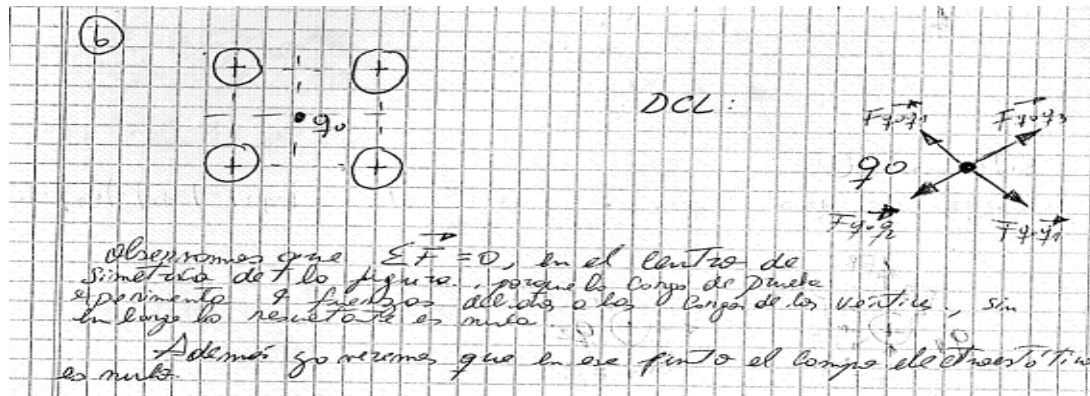 b
+ +
q0
+ +
DCL:
Fq0q4 Fq0q3
q0
Fq0q2 Fq0q1
observamos que ΣF = 0, en el centro de
simetría de la figura., porque la carga de prueba
experimenta 4 fuerzas debidas a las 4 cargas de los vértices, sin
embargo la resultante es nula.
Además ya veremos que en ese punto el campo electrostático
es nulo.